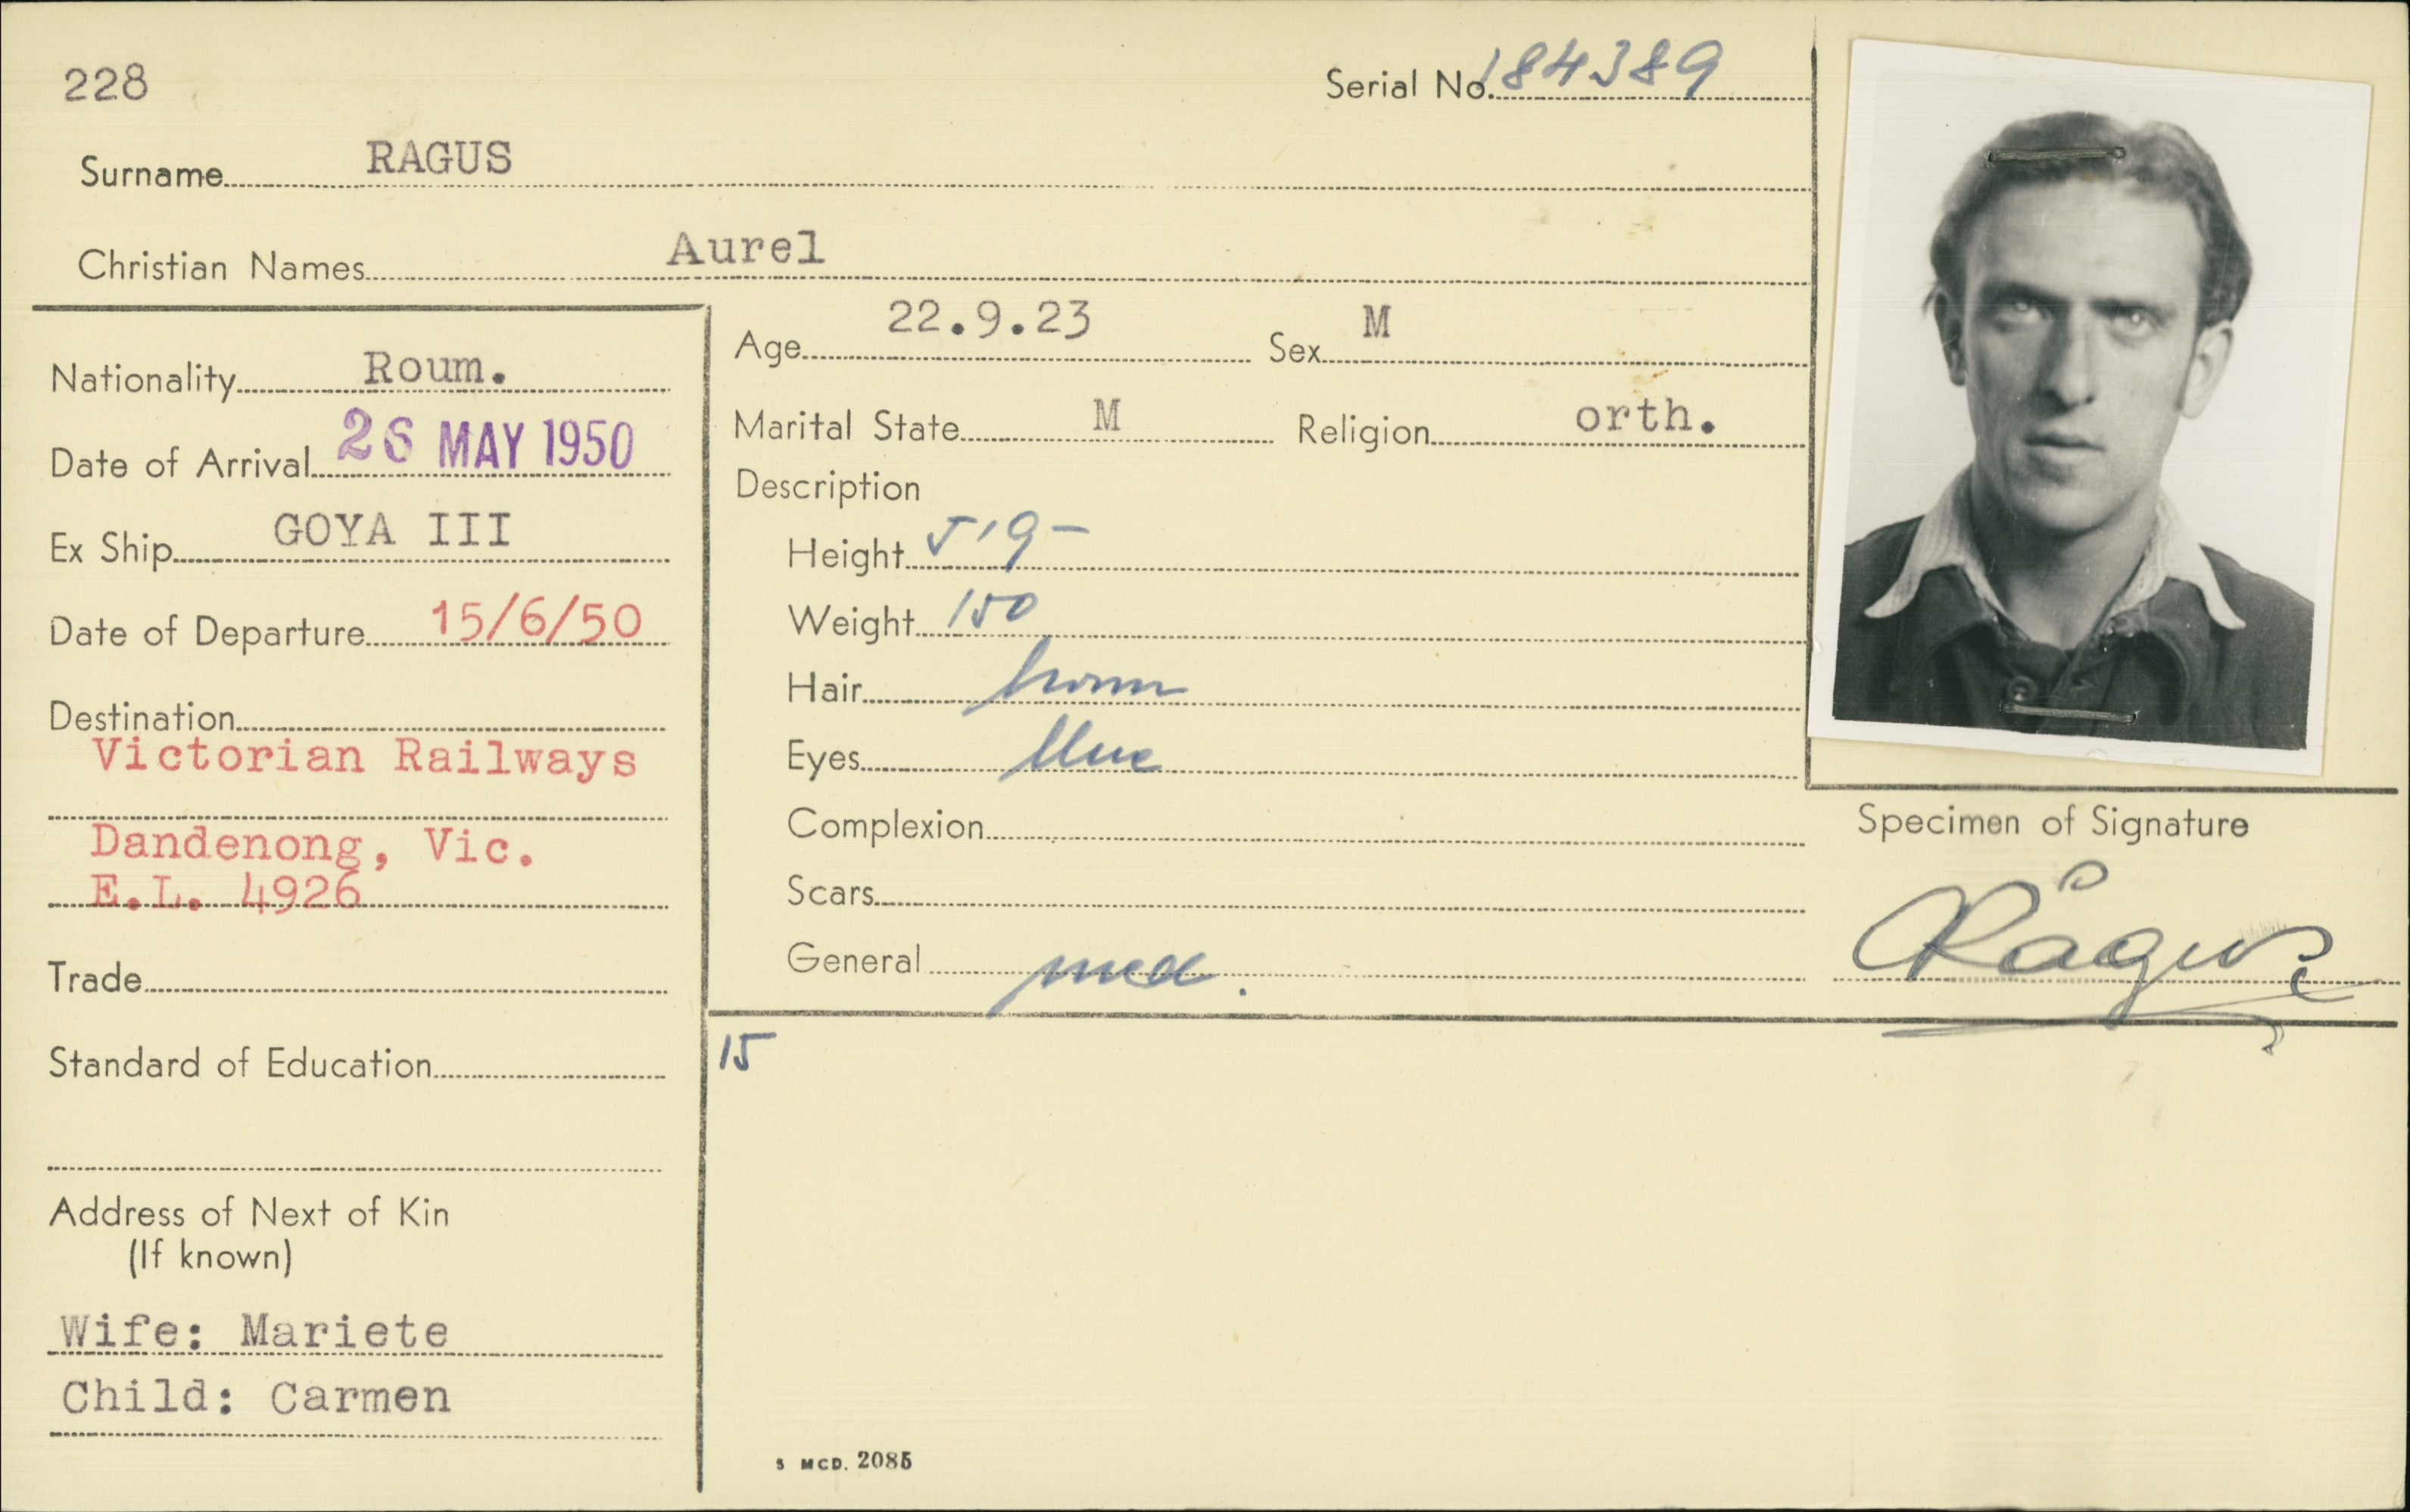 228
Serial No. 184389
Surname RAGUS
Christian Names Aurel
Nationality Roum.
Date of Arrival 26 MAY 1950
Ex Ship GOYA III
Date of Departure 15/6/50
Destination
Victorian Railways
Dandenong, Vic.
E.L. 4926
Trade
Standard of Education
Address of Next of Kin
(If known)
Wife: Mariete
Child: Carmen
Age 22.9.23 Sex M
Marital State M Religion orth.
Description
Height 5'9-
Weight 150
Hair brown
Eyes blue
Complexion
Scars
General med.
15
S MCD. 2085
Specimen of Signature
Ragus